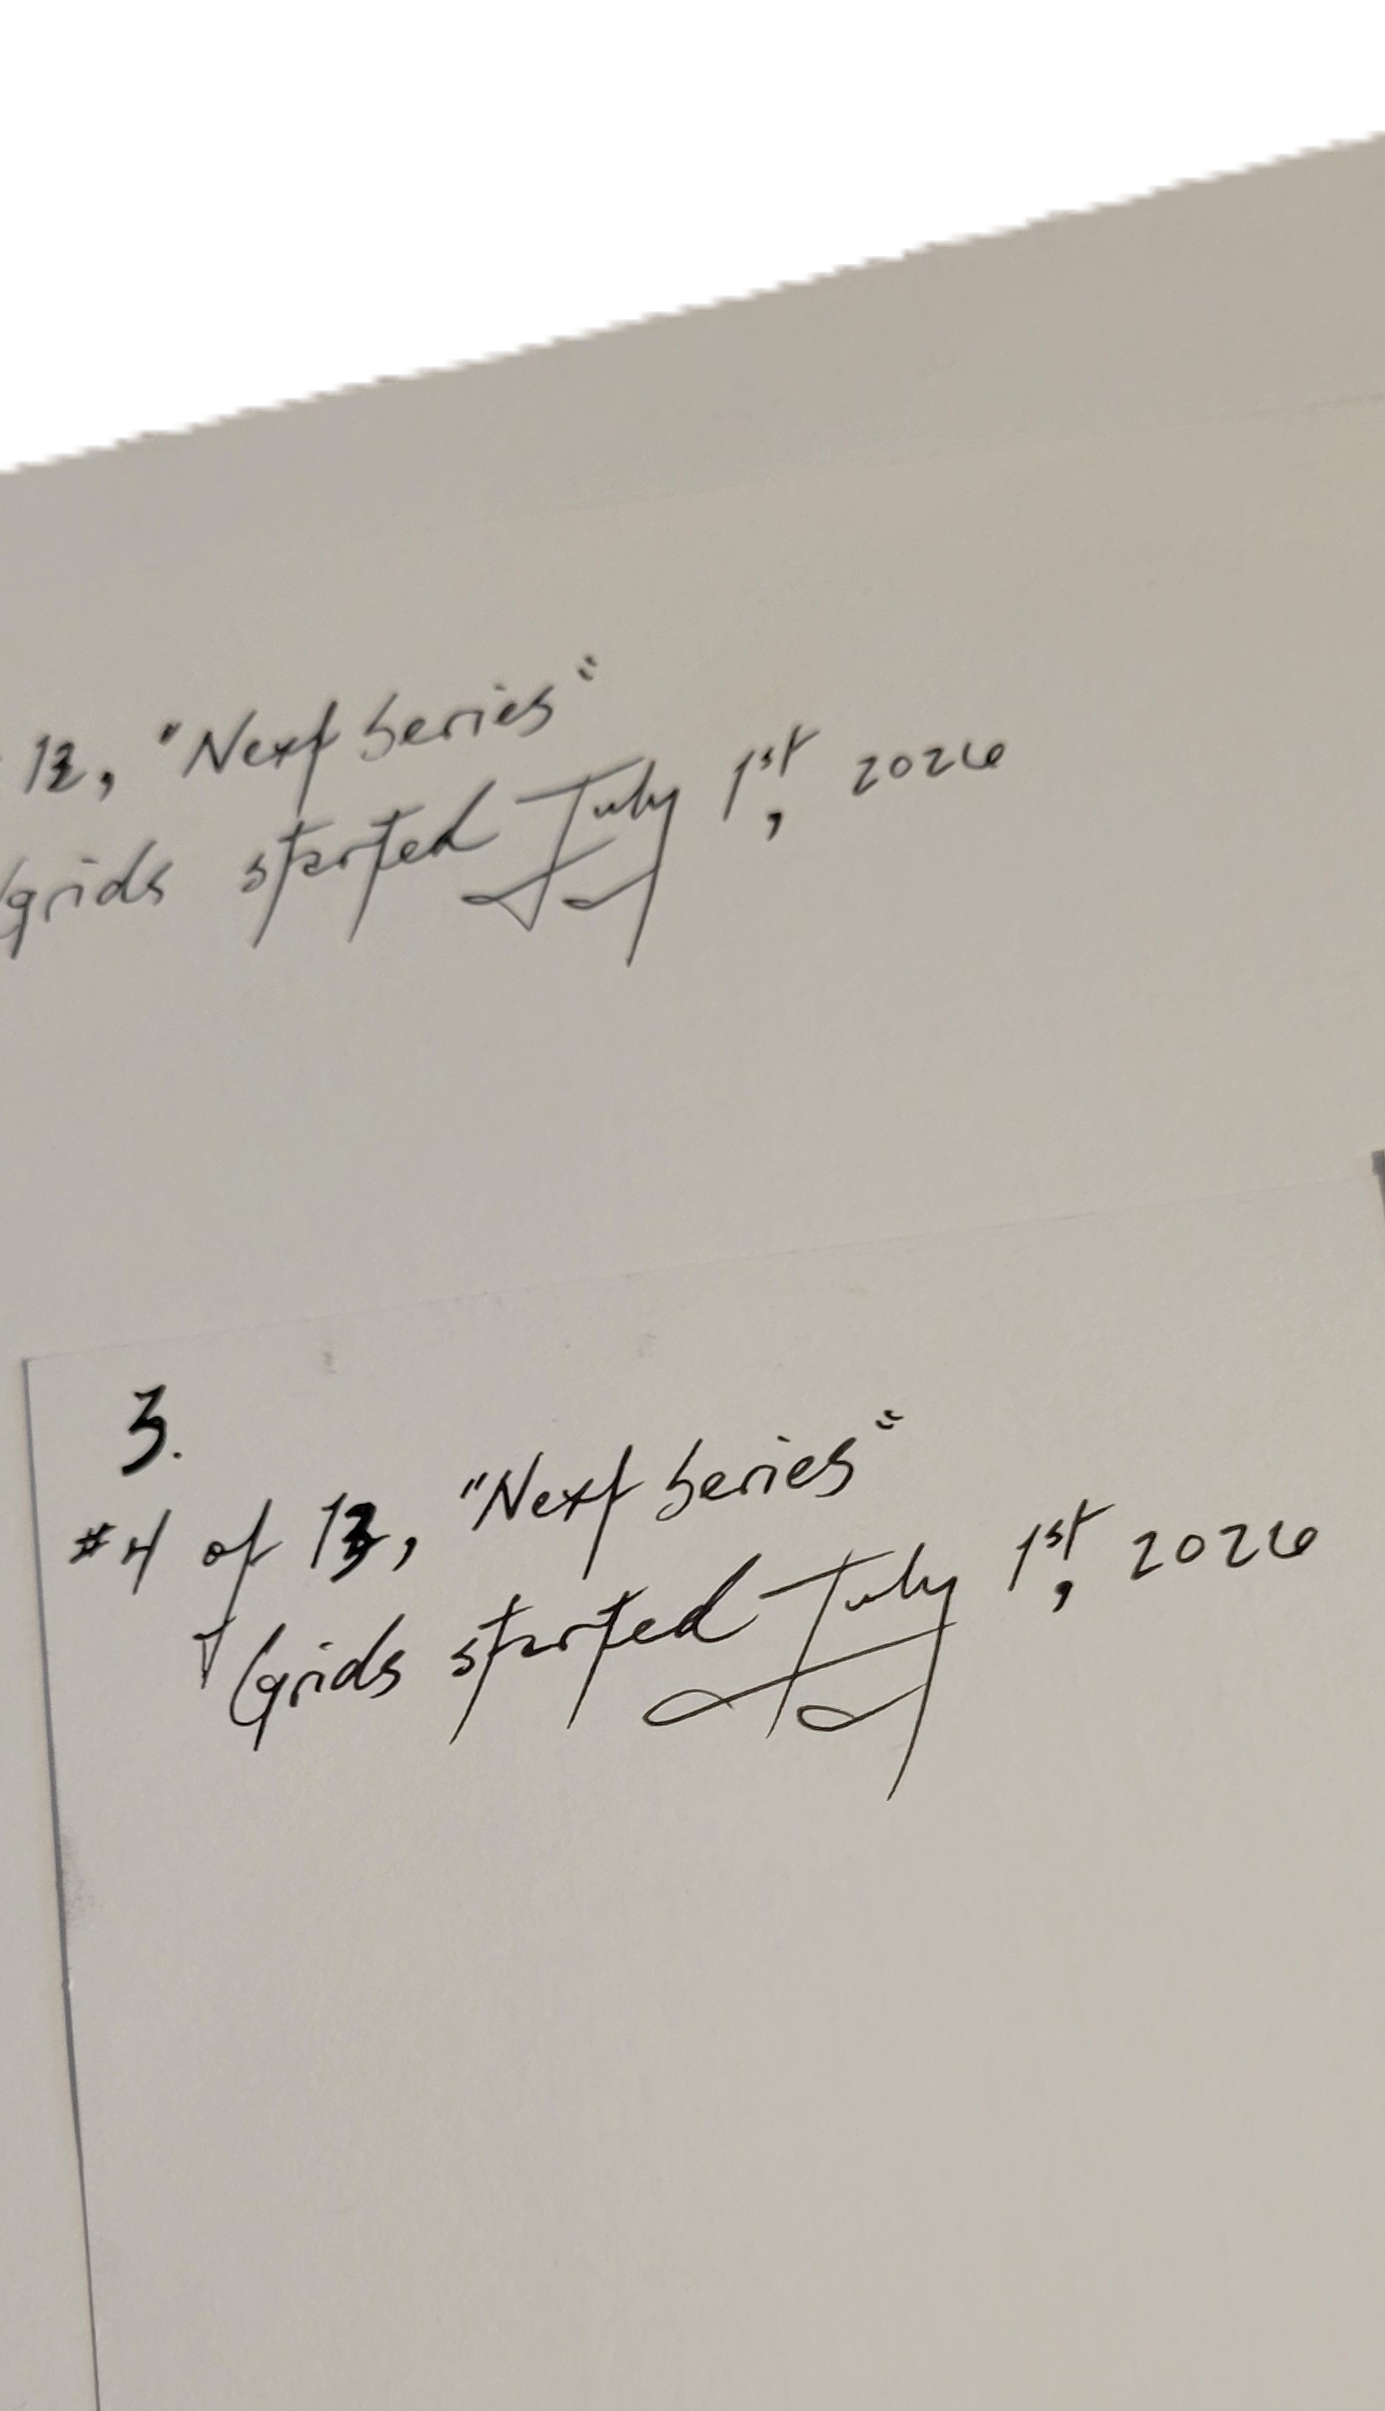 13, "Next Series"
Grids started July 1st, 2026
3.
#4 of 13, "Next Series"
Grids started July 1st, 2026